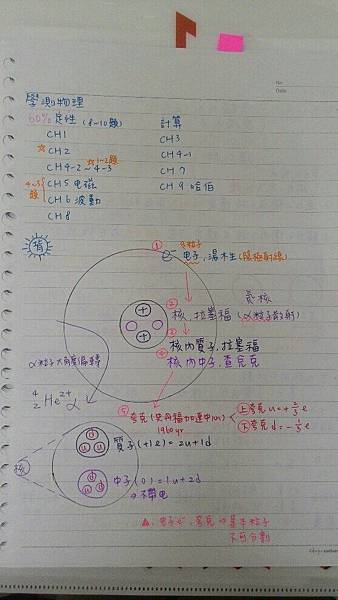 學測物理
60% 定性 (8~10題) 計算
CH1 CH3
☆ CH2 CH4-1
CH4-2~4-3 ☆1~2題 CH7
CH5 电磁 CH9 哈伯
4~5題 CH6 波動
CH8
背
① e⁻ 电子, 湯木生 (陰極射線)
② 核, 拉塞福 (α粒子散射)
③ 核內質子, 拉塞福
④ 核內中子, 查兌克
α粒子大角度偏轉
⁴₂He²⁺ α
⑤ 夸克
1960yr
上夸克 u = +2/3 e
下夸克 d = -1/3 e
核
d u u 質子 (+1e) = 2u+1d
d u d 中子 (0) = 1u+2d
→ 不帶电
△ 电子e⁻, 夸克 → 基本粒子
不可分割